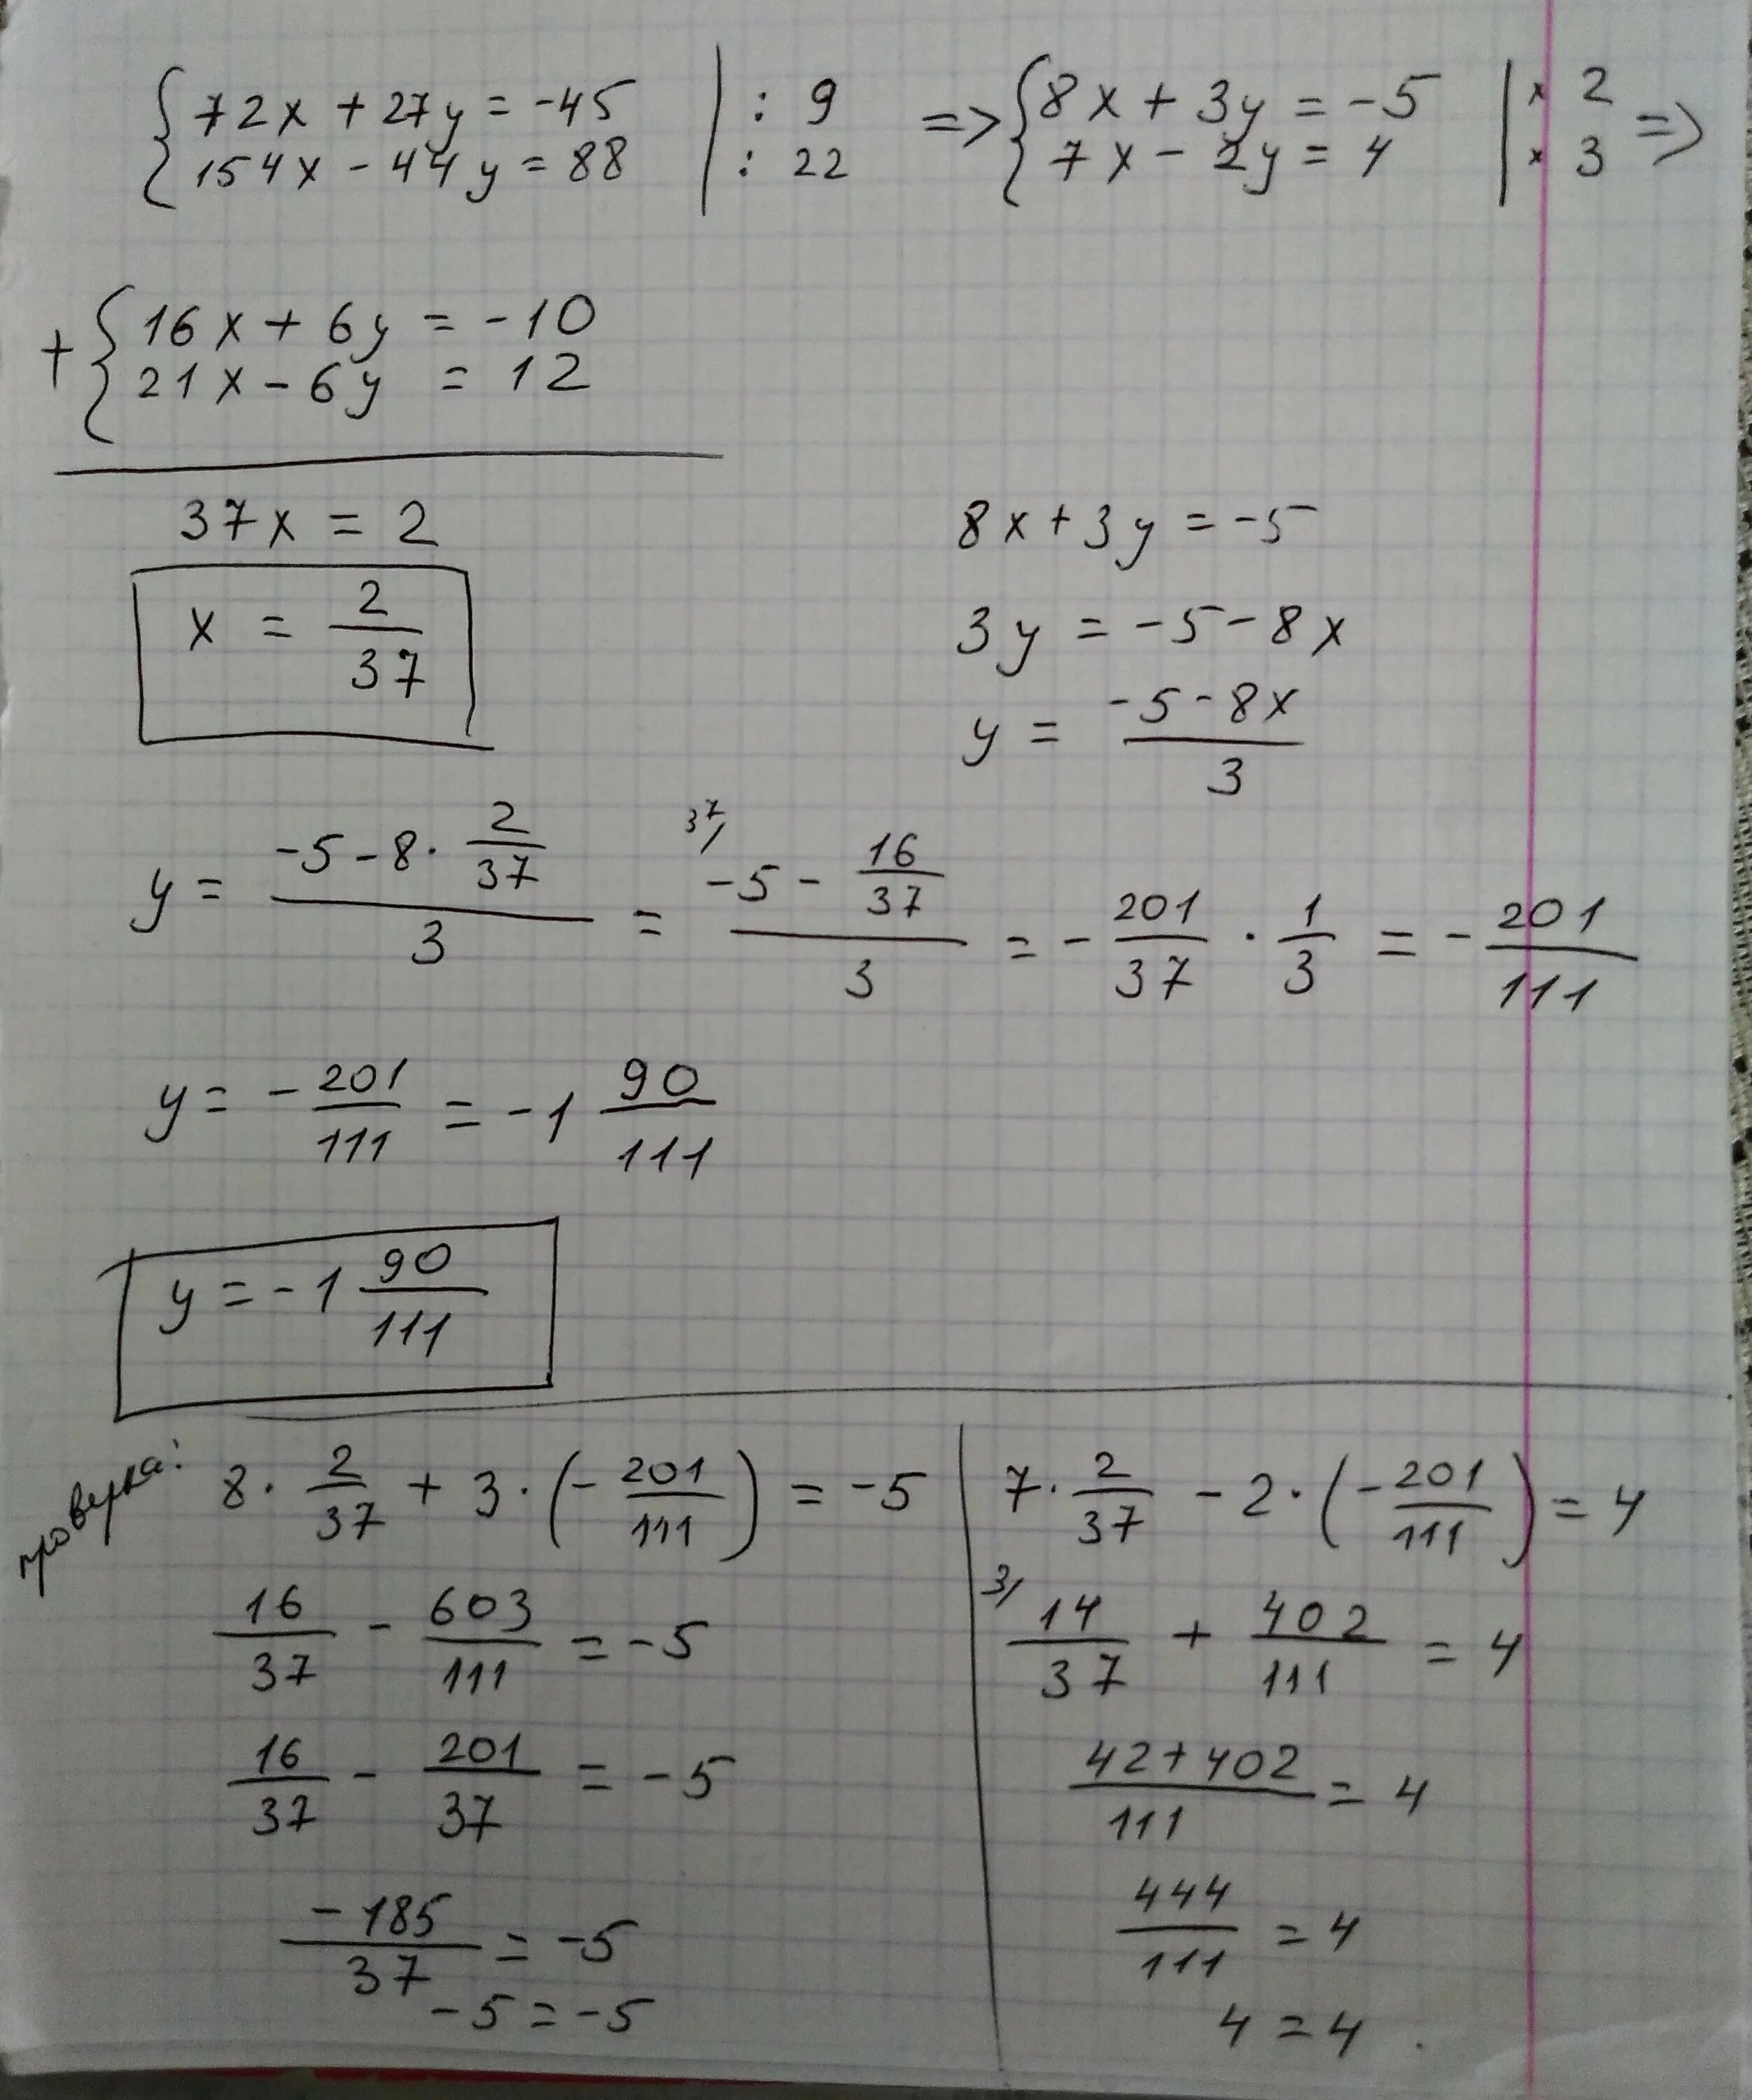 {72x + 27y = -45 | : 9 => {8x + 3y = -5 | × 2 =>
{154x - 44y = 88 | : 22 {7x - 2y = 4 | × 3
+ {16x + 6y = -10
{21x - 6y = 12
37x = 2
x = 2/37
8x + 3y = -5
3y = -5 - 8x
y = (-5 - 8x)/3
y = (-5 - 8 · 2/37)/3 = (37/ -5 - 16/37)/3 = - 201/37 · 1/3 = - 201/111
y = - 201/111 = -1 90/111
y = -1 90/111
проверка: 8 · 2/37 + 3 · (- 201/111) = -5
16/37 - 603/111 = -5
16/37 - 201/37 = -5
-185/37 = -5
-5 = -5
7 · 2/37 - 2 · (- 201/111) = 4
3/ 14/37 + 402/111 = 4
(42 + 402)/111 = 4
444/111 = 4
4 = 4